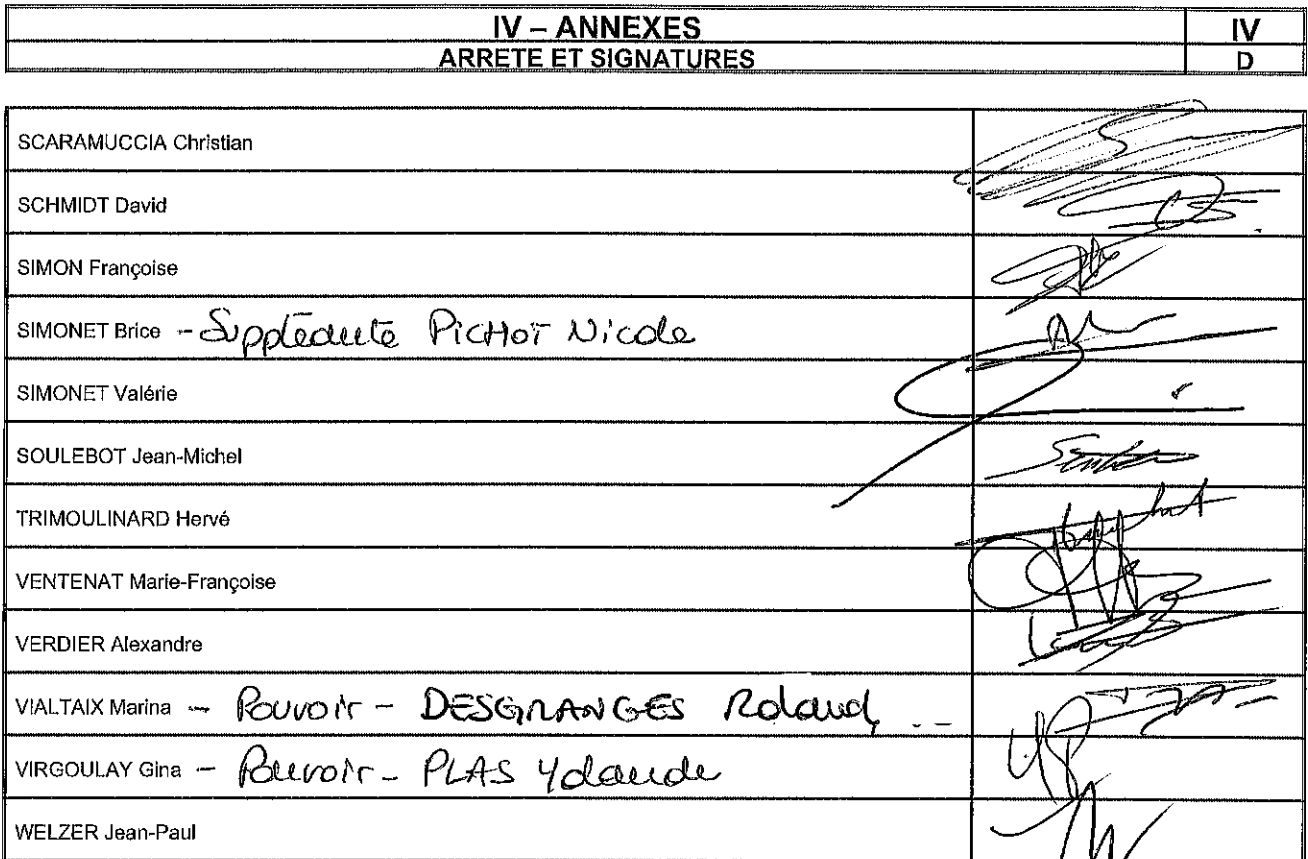 IV – ANNEXES IV
ARRETE ET SIGNATURES D
SCARAMUCCIA Christian
SCHMIDT David
SIMON Françoise
SIMONET Brice - Suppléante PICHOT Nicole
SIMONET Valérie
SOULEBOT Jean-Michel
TRIMOULINARD Hervé
VENTENAT Marie-Françoise
VERDIER Alexandre
VIALTAIX Marina - Pouvoir - DESGRANGES Roland
VIRGOULAY Gina - Pouvoir - PLAS Yolande
WELZER Jean-Paul